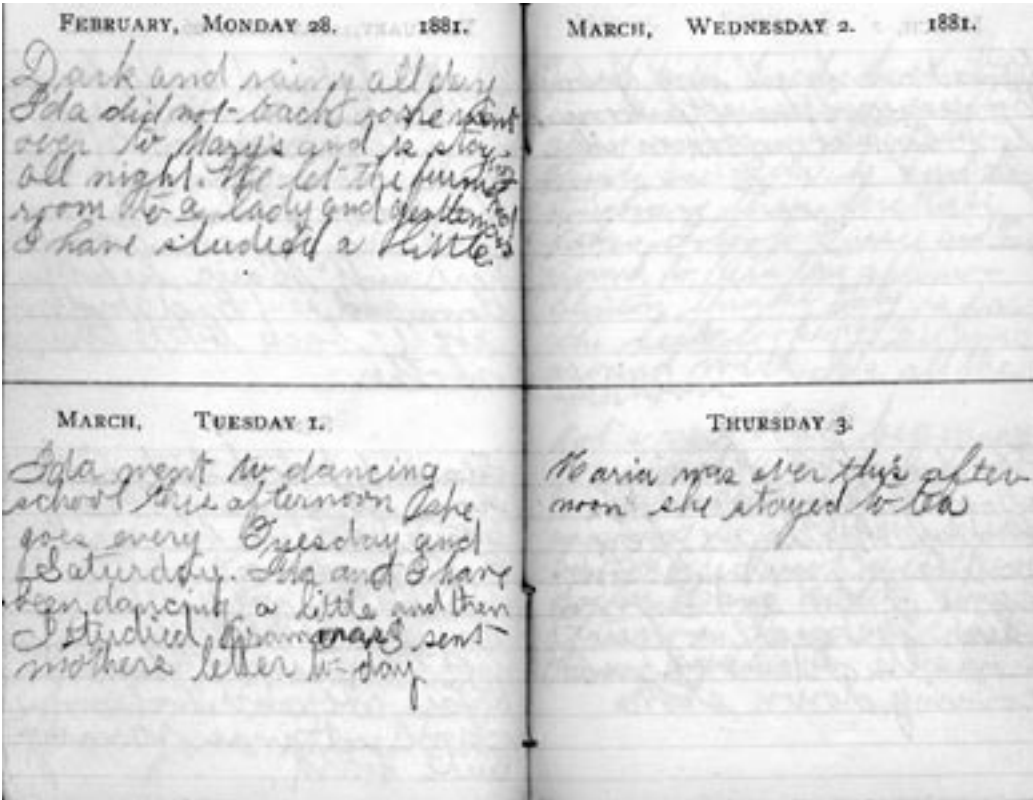 FEBRUARY, MONDAY 28. 1881.
Dark and rainy all day
Ida did not teach so she went
over to Mary's and is stay
ing
all night. We let the furnished
room to a lady and gentleman
I have studied a little
MARCH, TUESDAY 1.
Ida went to dancing
school this afternoon she
goes every Tuesday and
Saturday. Ida and I have
been dancing a little and then
I studied Grammar I sent
mothers letter to-day
MARCH, WEDNESDAY 2. 1881.
THURSDAY 3.
Maria was over this after
noon she stayed to tea